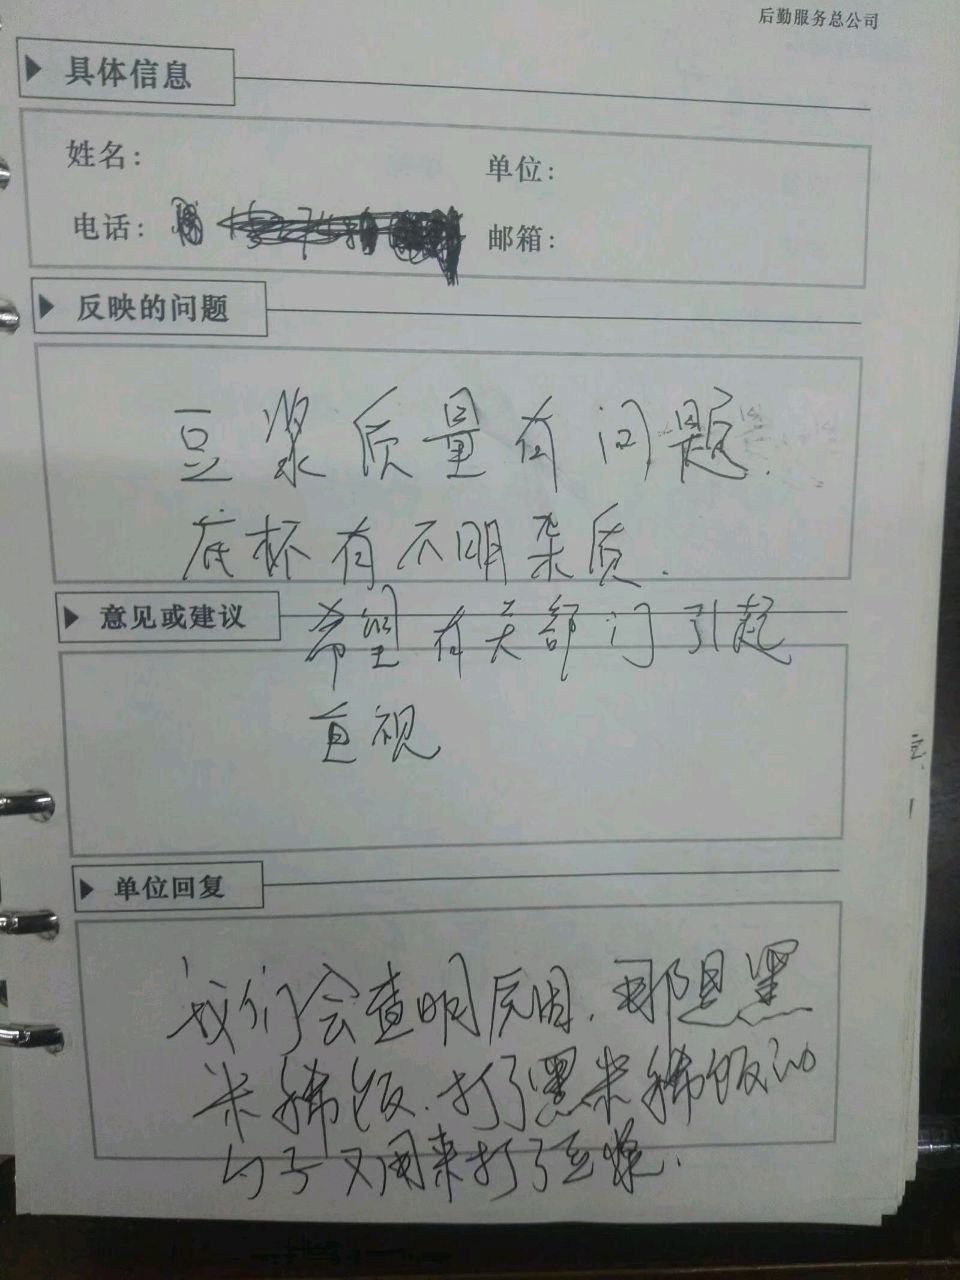 后勤服务总公司
具体信息
姓名:
单位:
电话:
邮箱:
反映的问题
豆浆质量有问题.
底杯有不明杂质.
意见或建议
希望有关部门引起
重视
单位回复
我们会查明原因. 那是黑
米稀饭. 打了黑米稀饭的
勺子又用来打了豆浆.